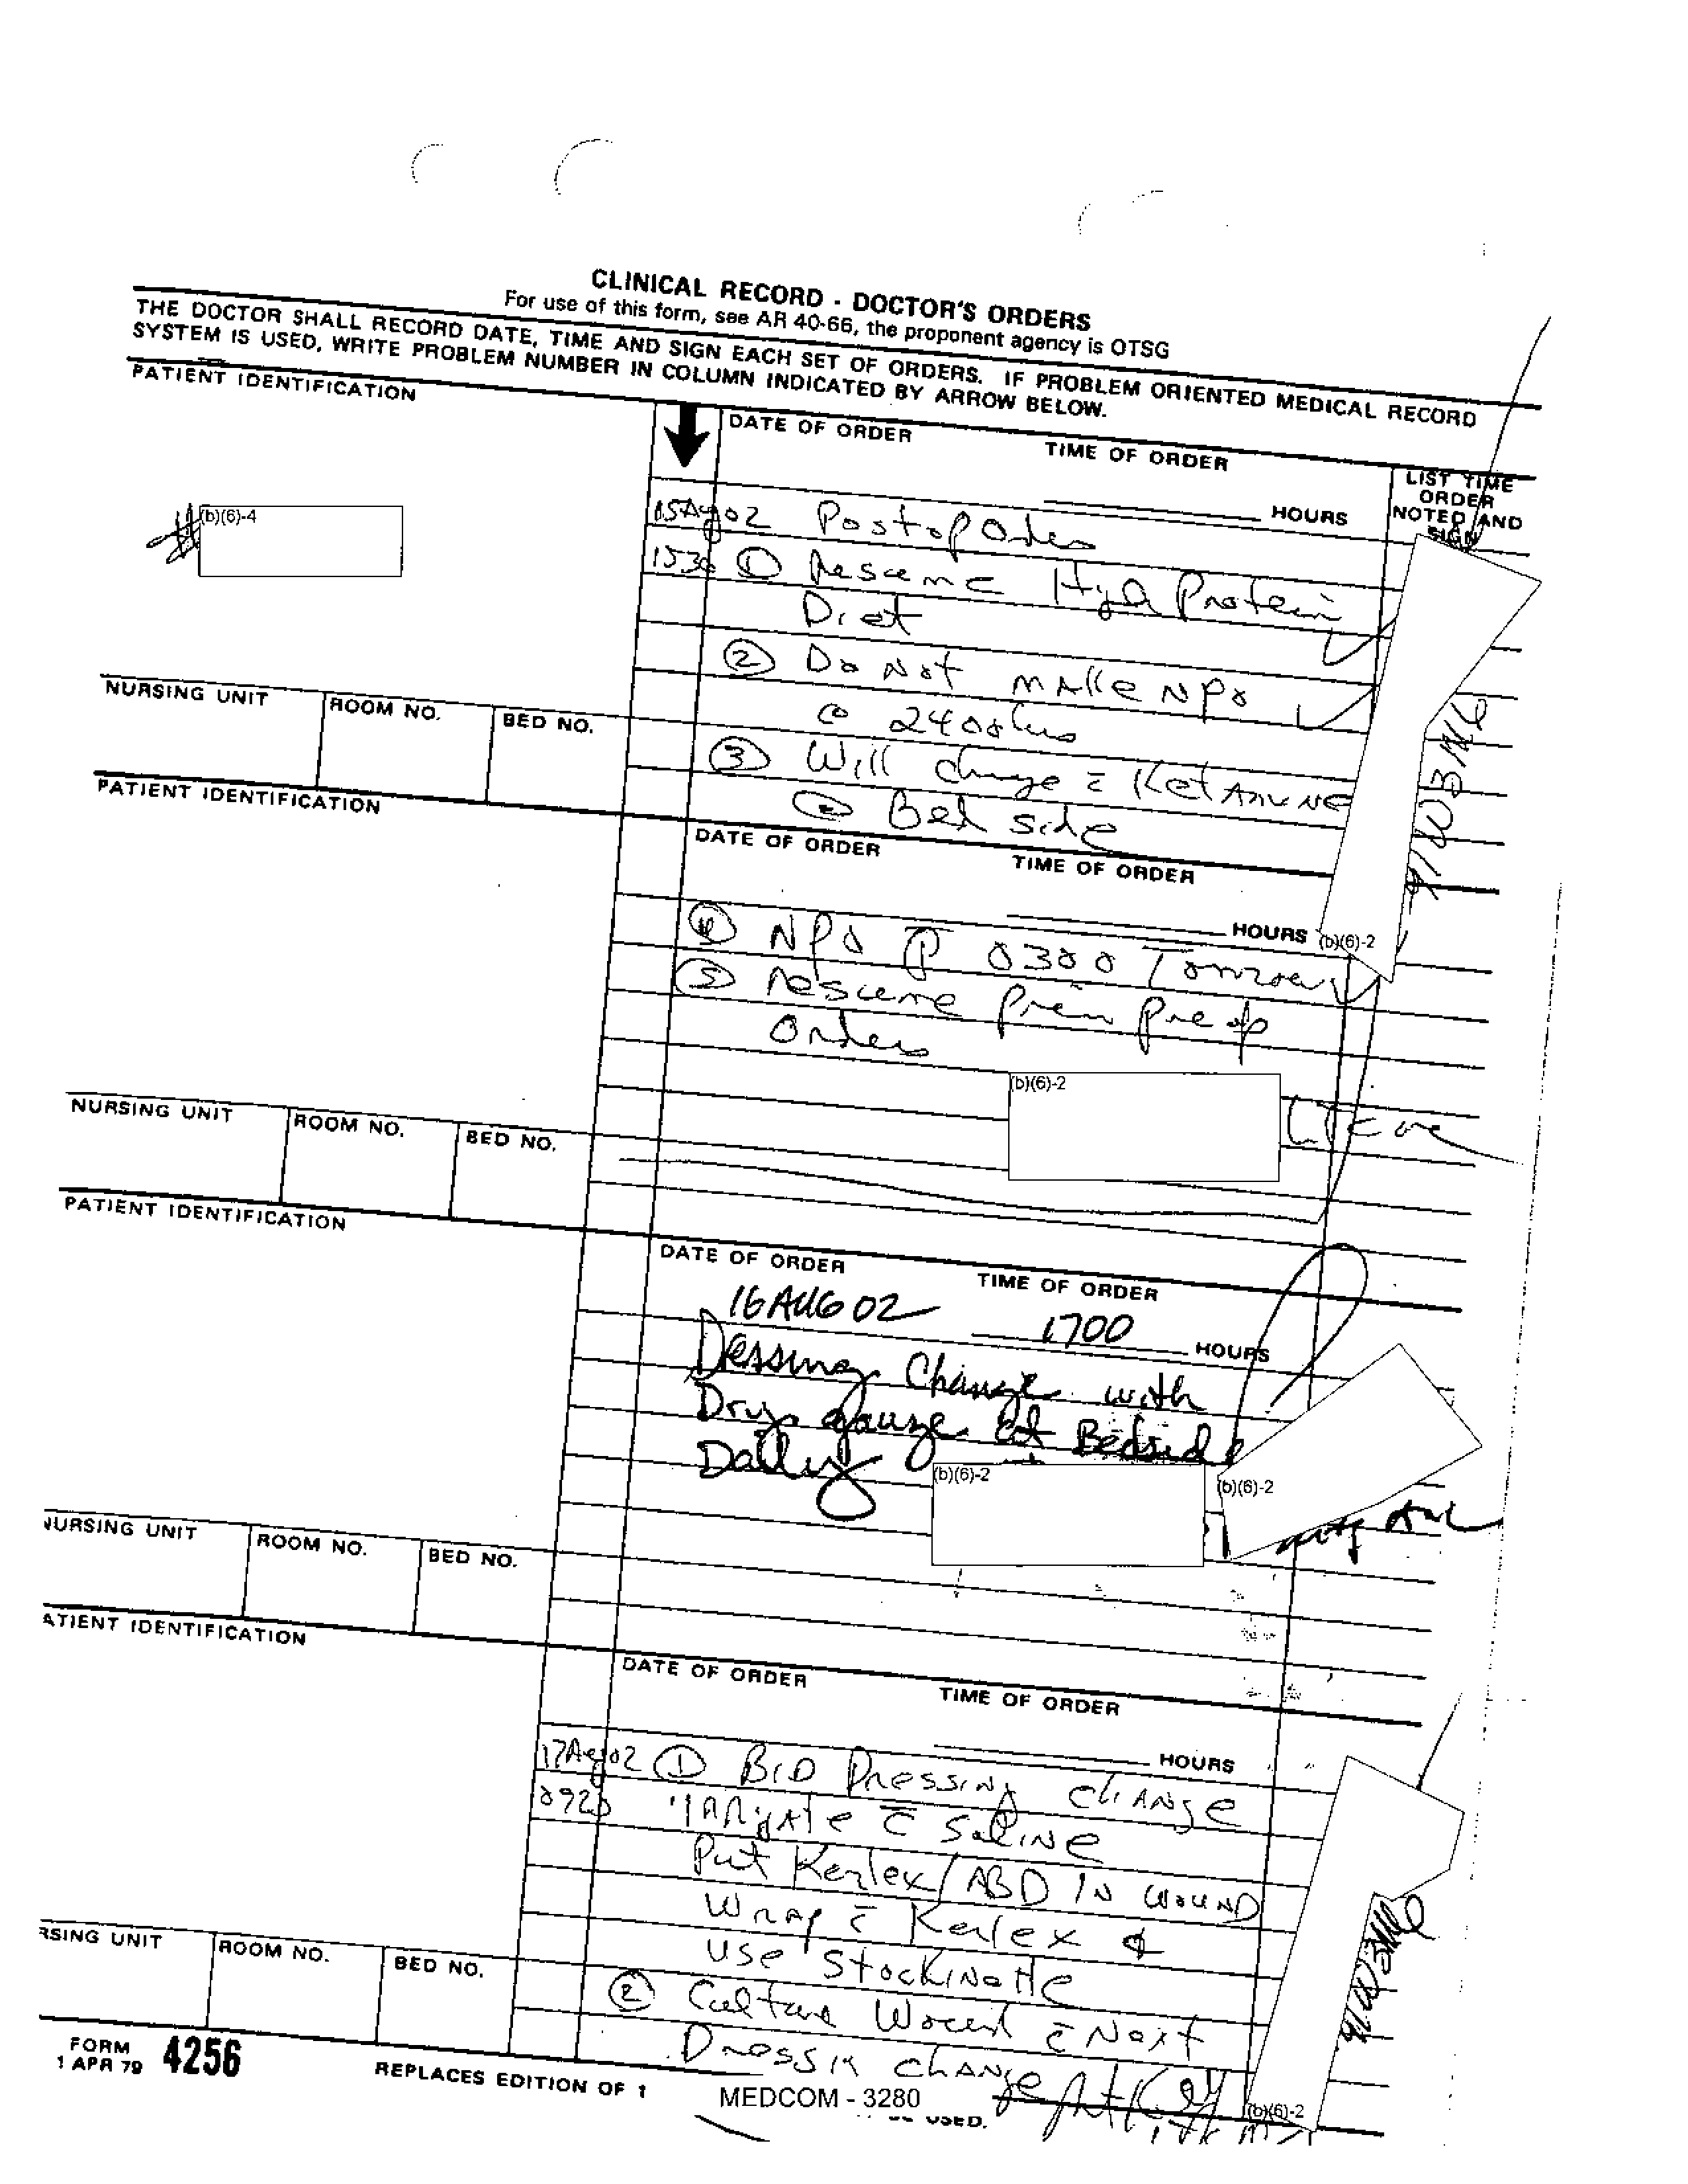 CLINICAL RECORD - DOCTOR'S ORDERS
For use of this form, see AR 40-66, the proponent agency is OTSG
THE DOCTOR SHALL RECORD DATE, TIME AND SIGN EACH SET OF ORDERS. IF PROBLEM ORIENTED MEDICAL RECORD
SYSTEM IS USED, WRITE PROBLEM NUMBER IN COLUMN INDICATED BY ARROW BELOW.
PATIENT IDENTIFICATION
DATE OF ORDER
TIME OF ORDER
HOURS
LIST TIME
ORDER
NOTED AND
SIGN
#
(b)(6)-4
15Aug02 Postop Orders
1530 ① Resume High Protein
Diet
② Do Not make NPO
@ 2400hrs
③ Will change c̄ Ketamine
@ Bed side
NURSING UNIT
ROOM NO.
BED NO.
PATIENT IDENTIFICATION
DATE OF ORDER
TIME OF ORDER
HOURS
(b)(6)-2
④ NPO p̄ 0300 Tomorrow
⑤ Resume Prev Preop
Orders
(b)(6)-2
NURSING UNIT
ROOM NO.
BED NO.
PATIENT IDENTIFICATION
DATE OF ORDER
TIME OF ORDER
16 AUG 02
1700
HOURS
Dessing Change with
Dry gauze at Bedside
Daily
(b)(6)-2
(b)(6)-2
NURSING UNIT
ROOM NO.
BED NO.
ATIENT IDENTIFICATION
DATE OF ORDER
TIME OF ORDER
HOURS
17Aug02 ① BID Dressing change
0920 Irrigate c̄ Saline
Put Kerlex/ABD IN WOUND
Wrap c̄ Kerlex &
use Stockinette
② Culture Wound c̄ Next
Dressin change
(b)(6)-2
RSING UNIT
ROOM NO.
BED NO.
FORM
1 APR 79
4256
REPLACES EDITION OF 1
MEDCOM - 3280
USED.